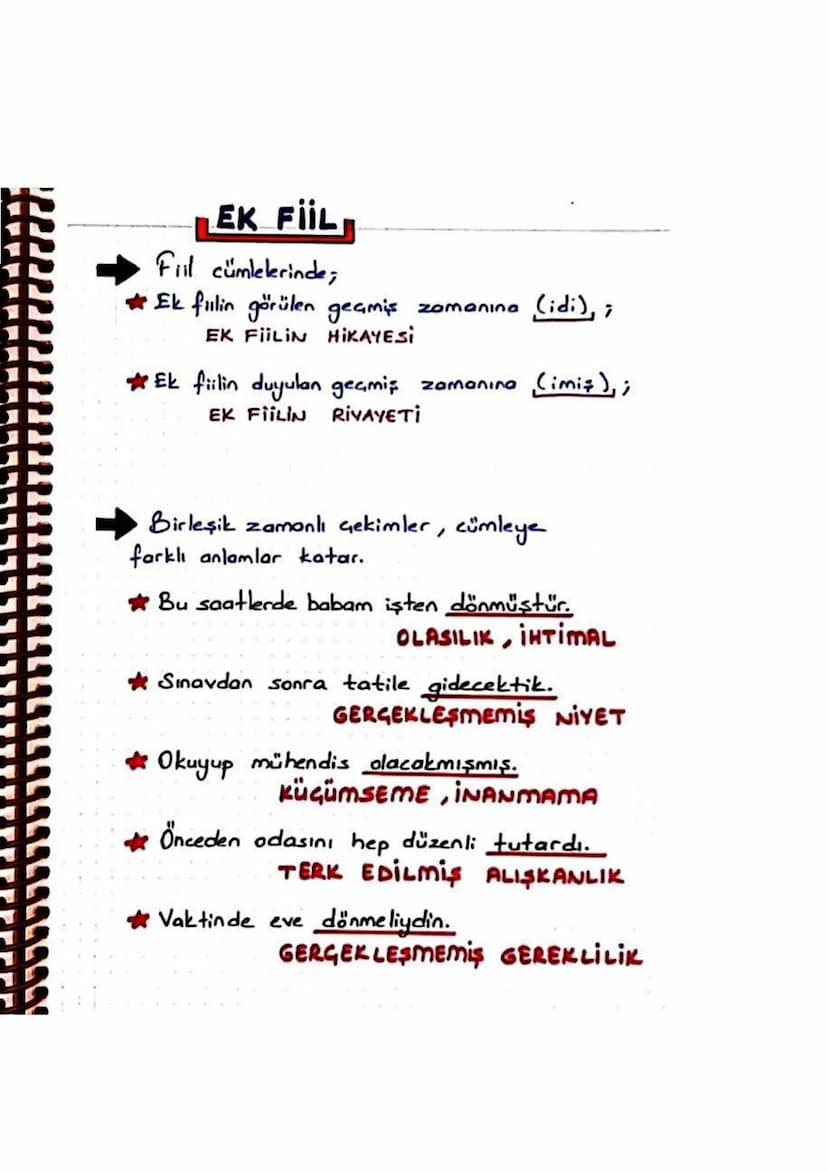 EK FİİL
Fiil cümlelerinde;
Ek fiilin görülen geçmiş zamanına (idi), ;
EK FİİLİN HİKAYESİ
Ek fiilin duyulan geçmiş zamanına (imiş), ;
EK FİİLİN RİVAYETİ
Birleşik zamanlı çekimler, cümleye
farklı anlamlar katar.
Bu saatlerde babam işten dönmüştür.
OLASILIK, İHTİMAL
Sınavdan sonra tatile gidecektik.
GERÇEKLEŞMEMİŞ NİYET
Okuyup mühendis olacakmışmış.
KÜÇÜMSEME, İNANMAMA
Önceden odasını hep düzenli tutardı.
TERK EDİLMİŞ ALIŞKANLIK
Vaktinde eve dönmeliydin.
GERÇEKLEŞMEMİŞ GEREKLİLİK